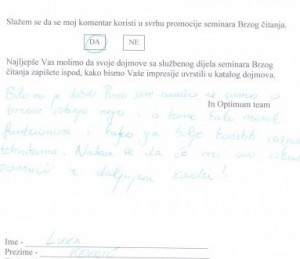 Slažem se da se moj komentar koristi u svrhu promocije seminara Brzog čitanja.
DA NE
Najljepše Vas molimo da svoje dojmove sa službenog dijela seminara Brzog
čitanja zapišete ispod, kako bismo Vaše impresije uvrstili u katalog dojmova.
In Optimum team
Bilo mi je dobro. Puno sam naučio ne samo o
brzom čitanju nego i o tome kako mozak
funkcionira i kako ga bolje koristiti
tehnikama. Nadam se da će mi ovo
pomoći u daljnjem
Ime - LUKA
Prezime -